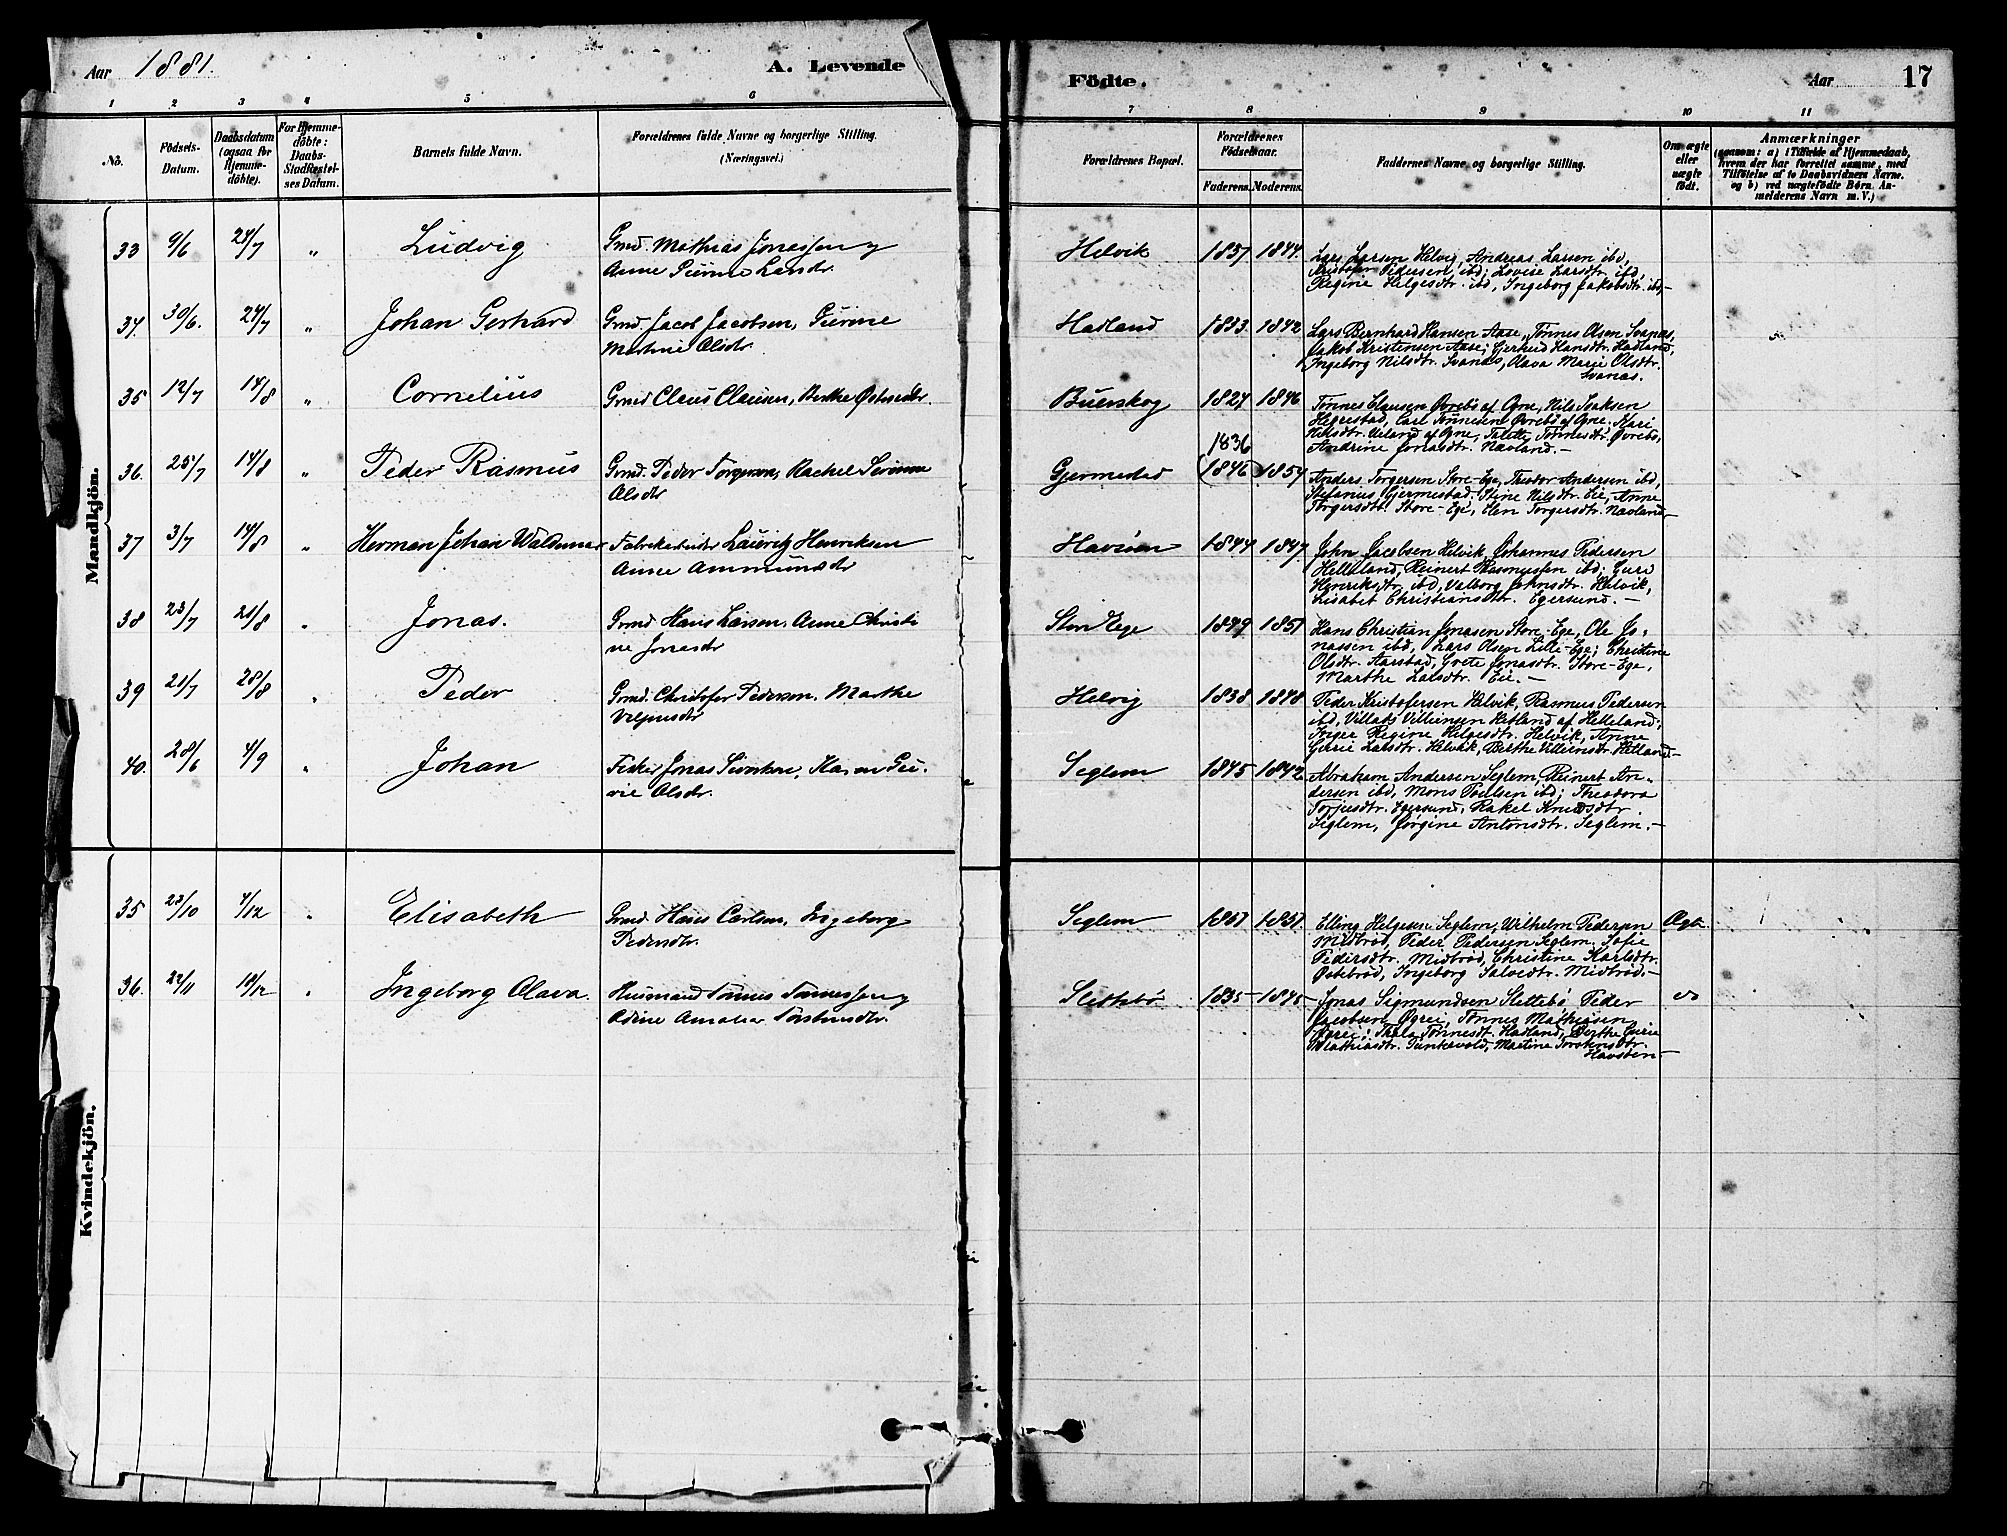 Aar 1881. A. Levende
Födte. Aar 17
1 2 3 4 5 6
7 8 9 10 11
No.
Födsels-
Datum.
Daabsdatum
(ogsaa for
Hjemme-
döbte).
For Hjemme-
döbte:
Daabs-
Stadfæstel-
ses Datum.
Barnets fulde Navn.
Forældrenes fulde Navne og borgerlige Stilling.
(Næringsvei.)
Forældrenes Bopæl.
Forældrenes
Födselsaar.
Faderens. Moderens.
Faddernes Navne og borgerlige Stilling.
Om ægte
eller
uægte
født.
Anmærkninger
(saasom: a) i Tilfælde af Hjemmedaab,
hvem der har forrettet samme, med
Tilföielse af to Daabsvidners Navne.
og b) ved uægtefödte Börn, An-
melderens Navn m. V.)
Mandkjön.
33 9/6 24/7 " Ludvig Grmd. Mathias Jonassen og
Anne Larsdr.
Helvik 1837 1844
Lars Larsen Helvig, Andreas Larsen ibd,
Kristofer Pedersen ibd; Lovise Larsdtr. ibd,
Regine Helgesdtr. ibd, Ingeborg Jakobsdtr. ibd,—
34. 30/6. 24/7 " Johan Gerhard Grmd. Jacob Jacobsen,
Martine Olsdtr.
Hadland 1833 1842
Lars Bernhard Hansen Aase, Tønnes Olsen Svanes,
Jakob Kristensen Aase; Gjertrud Hansdtr. Hadland,
Ingeborg Nilsdtr. Svanes, Olava Marie Olsdtr.
Svanes.
35 12/7 14/8 " Cornelius Grmd Claus Clausen, Berthe
1827 1846
Tønnes Clausen Øvrebø af Ogne, Nils Isaksen
Hegrestad, Carl Tønnesen Øvrebø af Ogne, Kari
Nilsdtr. Ueland af Ogne, Talette Tønnesdtr. Øvrebø,
Andrine Jonasdtr. Navland.—
36. 25/7 14/8 " Peder Rasmus Grmd. Peder Torgersen, Rachel Serine
Olsdtr
Gjermestad 1836
(1846) 1854
Anders Torgersen Store-Ege, Theodor Andersen ibd,
Stefanus Gjermestad. Stine Nilsdtr. Eie, Anne
Torgersdtr. Store-Ege, Elen Torgersdtr. Navland—
37 3/7 14/8 " Herman Johan Waldemar Fabrikarbeider Lauritz Henriksen
Anne Ammundsdr
1844 1847
John Jacobsen Helvik, Johannes Pedersen
Helleland, Reinert Rasmussen ibd; Guri
Henriksdtr, ibd, Valborg Johnsdtr. Helvik,
Lisabet Christiansdtr. Egersund.—
38 23/7 21/8 " Jonas. Grmd Hans Larsen. Anne Christi
ne Jonasdr
Store Ege 1849 1851
Hans Christian Jonasen Store-Ege, Ole Jo-
nassen ibd, Lars Olsen Lille-Ege; Christine
Olsdtr. Aarstad, Grete Jonasdtr. Store-Ege,
Marthe Larsdtr. Eie.—
39 21/7 28/8 " Peder Grmd. Christofer Pedersen. Marthe
Helvig 1838 1848
Peder Kristofersen Helvik, Rasmus Pedersen
ibd, Hetland af Helleland;
Inger Regine Helgesdtr. Helvik, Anne
Gurie Larsdtr. Helvik, Berthe Villumsdtr. Hetland—
40. 28/6 4/9 " Johan Fisker Jonas Sivertsen, Karen Gu-
rie Olsdr.
Seglem 1845 1842
Abraham Andersen Seglem, Reinert An-
dersen ibd, Mons Poulsen ibd; Theodora
Torjusdtr. Egersund, Rakel Knudsdtr
Seglem, Jørgine Antonsdtr. Seglem.—
Kvindekjön.
35 23/10 4/12 " Elisabeth Grmd. Hans Carlsen, Ingeborg
Pedersdtr.
Seglem 1857 1857
Elling Helgesen Seglem, Wilhelm Pedersen
Midbrød, Peder Pedersen Seglem. Sofie
Pedersdtr. Midbrød, Christine Karlsdtr.
Østebrød, Ingeborg Salvesdtr. Midbrød.—
Ægte
36. 22/11 18/12 " Ingeborg Olava. Husmand Tønnes Tønnessen og
Adine Amalia Torstensdtr.
Slettebø 1835 1845
Jonas Sigmundsen Slettebø Peder
Jacobsen Øgrei, Tønnes Mathiasen
Øgrei; Thala Tønnesdt. Hadland, Berthe Gurie
Mathiasdtr. Puntervold, Martine Torstensdtr.
Havsøen.—
do